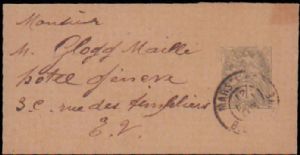 Monsieur
M. Glogg Maille
hôtel Genève
3c rue des Templiers
E. V.